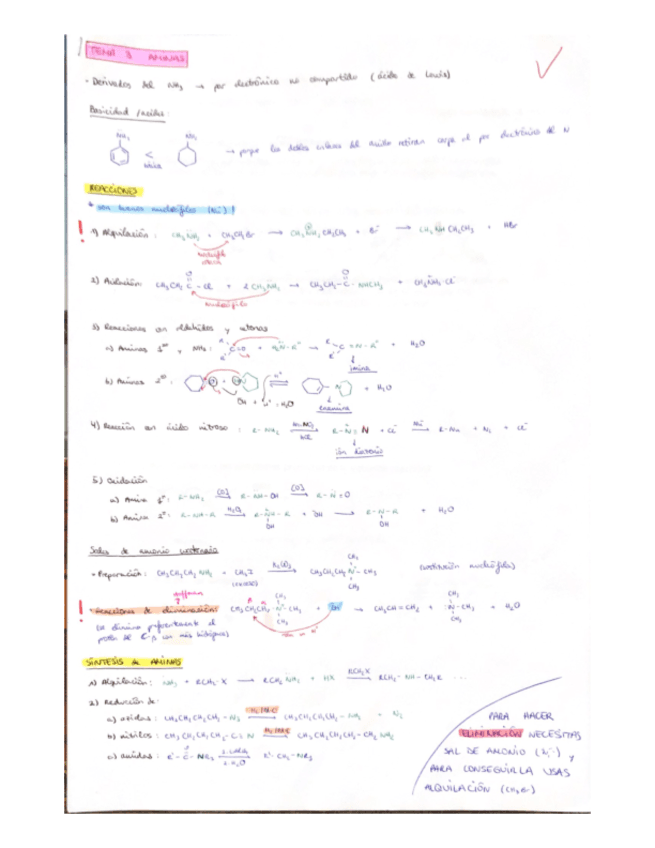 TEMA 3 AMINAS
- Derivados del NH₃ → par electrónico no compartido (ácido de Lewis)
Basicidad /acidez:
NH₂ NH₂
< → porque los dobles enlaces del anillo retiran carga el par electrónico del N
REACCIONES
* son buenos nucleófilos (N:⁻)!
! 1) Alquilación: CH₃NH₂ + CH₃CH₂Br → CH₃NH₂CH₂CH₃ + Br⁻ → CH₃NHCH₂CH₃ + HBr
2) Acilación: CH₃CH₂C-Cl + 2 CH₃NH₂ → CH₃CH₂-C-NHCH₃ + CH₃NH₃Cl⁻
O O
nucleófilo
3) Reacciones con aldehídos y cetonas
a) Aminas 1ª y NH₃: R C=O + H₂N-R'' → R C=N-R'' + H₂O
R' R'
imina
b) Aminas 2ª: + H₂O
enamina
4) Reacción con ácido nitroso: R-NH₂ → R-N≡N + Cl⁻ → R-Nu + N₂ + Cl⁻
HCl
ión diazonio
5) Oxidación
a) Amina 1ª: R-NH₂ [O] → R-NH-OH [O] → R-N=O
b) Amina 2ª: R-NH-R H₂O₂ → R-NH-R + OH → R-N-R + H₂O
OH OH
Sales de amonio cuaternario
CH₃
• Preparación: CH₃CH₂CH₂NH₂ + CH₃I → CH₃CH₂CH₂N-CH₃ (sustitución nucleófila)
CH₃
hoffmann
CH₃ CH₃
! • Reacciones de eliminación: CH₃CH₂CH₂-N-CH₃ + OH → CH₃CH=CH₂ + :N-CH₃ + H₂O
CH₃ CH₃
(se elimina preferentemente el
protón del Cβ con más hidrógenos)
SÍNTESIS de AMINAS
1) Alquilación: NH₃ + RCH₂-X → RCH₂NH₂ + HX RCH₂X → RCH₂-NH-CH₂R ...
2) Reducción de:
a) azidas: CH₃CH₂CH₂CH₂-N₃ H₂/Pd-C → CH₃CH₂CH₂CH₂-NH₂ + N₂
b) nitrilos: CH₃CH₂CH₂CH₂-C≡N H₂/Pd-C → CH₃CH₂CH₂CH₂-CH₂NH₂
c) amidas: R'-C-NR₂ 1. LiAlH₄ → R'-CH₂-NR₂
O 2. H₂O
PARA HACER
ELIMINACIÓN NECESITAS
SAL DE AMONIO (N:⁻) y
PARA CONSEGUIRLA USAS
ALQUILACIÓN (CH₃Br)